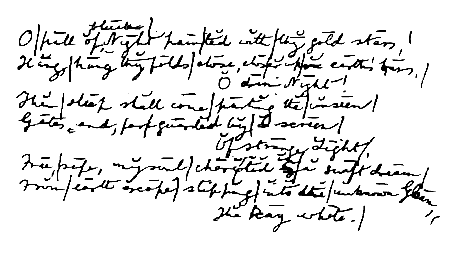 thicker
O pall of Night painted with thy gold stars,!
Hang, hang thy folds close, closer upon earth's bars,
O dim Night!
Then sleep shall come parting the unseen
Gates, and, far guarded by a screen
Of strange Light,
Free, safe, my soul charioted by a swift dream
From earth escape slipping into the unknown Gleam,
The Ray white.